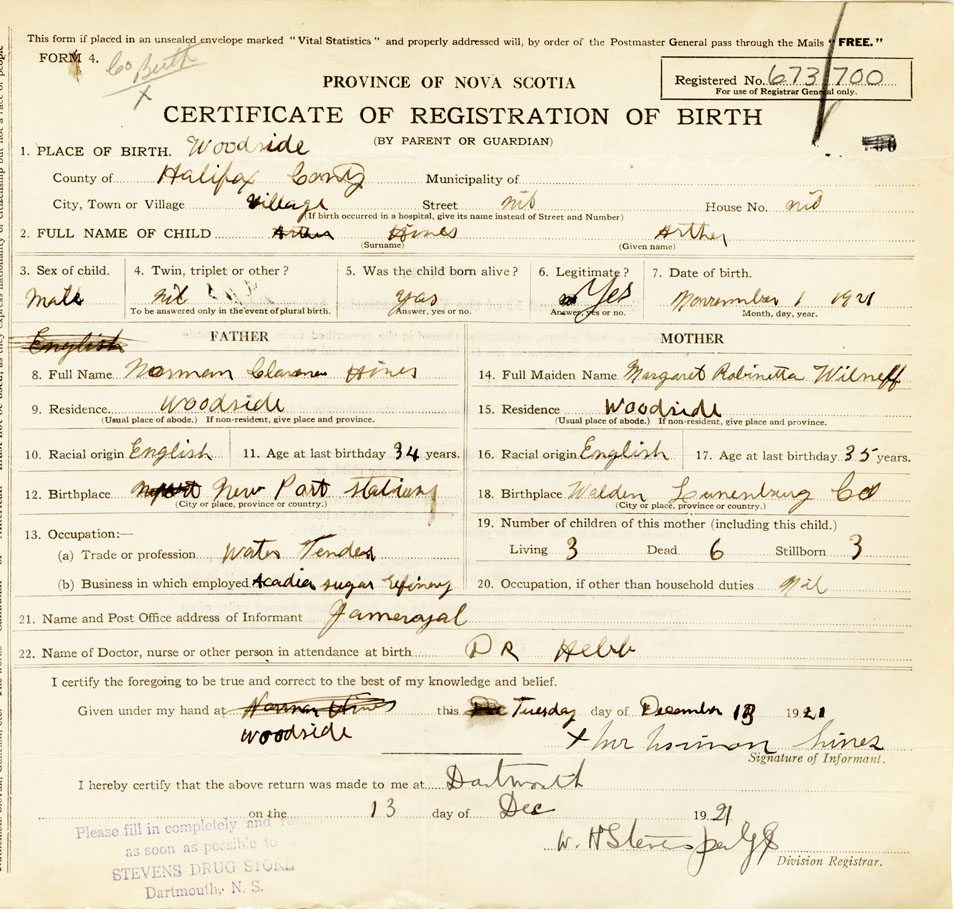 This form if placed in an unsealed envelope marked "Vital Statistics" and properly addressed will, by order of the Postmaster General pass through the Mails "FREE."
FORM 4.
Co Birth
X
PROVINCE OF NOVA SCOTIA
Registered No. 673 700
For use of Registrar General only.
CERTIFICATE OF REGISTRATION OF BIRTH
(BY PARENT OR GUARDIAN)
1. PLACE OF BIRTH. Woodside
County of Halifax Conty Municipality of
City, Town or Village village Street nil House No. nil
(If birth occurred in a hospital, give its name instead of Street and Number)
2. FULL NAME OF CHILD Hines Arther
(Surname) (Given name)
3. Sex of child. 4. Twin, triplet or other? 5. Was the child born alive? 6. Legitimate? 7. Date of birth.
Male nil yas Yes Novermber 1 1921
To be answered only in the event of plural birth. Answer, yes or no. Answer, yes or no. Month, day, year.
English
FATHER MOTHER
8. Full Name Norman Clarence Hines 14. Full Maiden Name Margaret Robinetta Wilneff
9. Residence Woodside 15. Residence Woodside
(Usual place of abode.) If non-resident, give place and province. (Usual place of abode.) If non-resident, give place and province.
10. Racial origin English 11. Age at last birthday 34 years. 16. Racial origin English 17. Age at last birthday 35 years.
12. Birthplace New Port station 18. Birthplace Walden Lunenburg Co
(City or place, province or country.) (City or place, province or country.)
13. Occupation:— 19. Number of children of this mother (including this child.)
(a) Trade or profession Water Tender Living 3 Dead 6 Stillborn 3
(b) Business in which employed Acadia sugar refinery 20. Occupation, if other than household duties Nil
21. Name and Post Office address of Informant
22. Name of Doctor, nurse or other person in attendance at birth DR Hebb
I certify the foregoing to be true and correct to the best of my knowledge and belief.
Given under my hand at Norman Hines this Tuesday day of December 13 1921
woodside X Mr Norman Hines
Signature of Informant.
I hereby certify that the above return was made to me at Dartmouth
on the 13 day of Dec 1921
W. H Stevens per
Division Registrar.
Please fill in completely and
as soon as possible to
STEVENS DRUG STORE
Dartmouth, N. S.